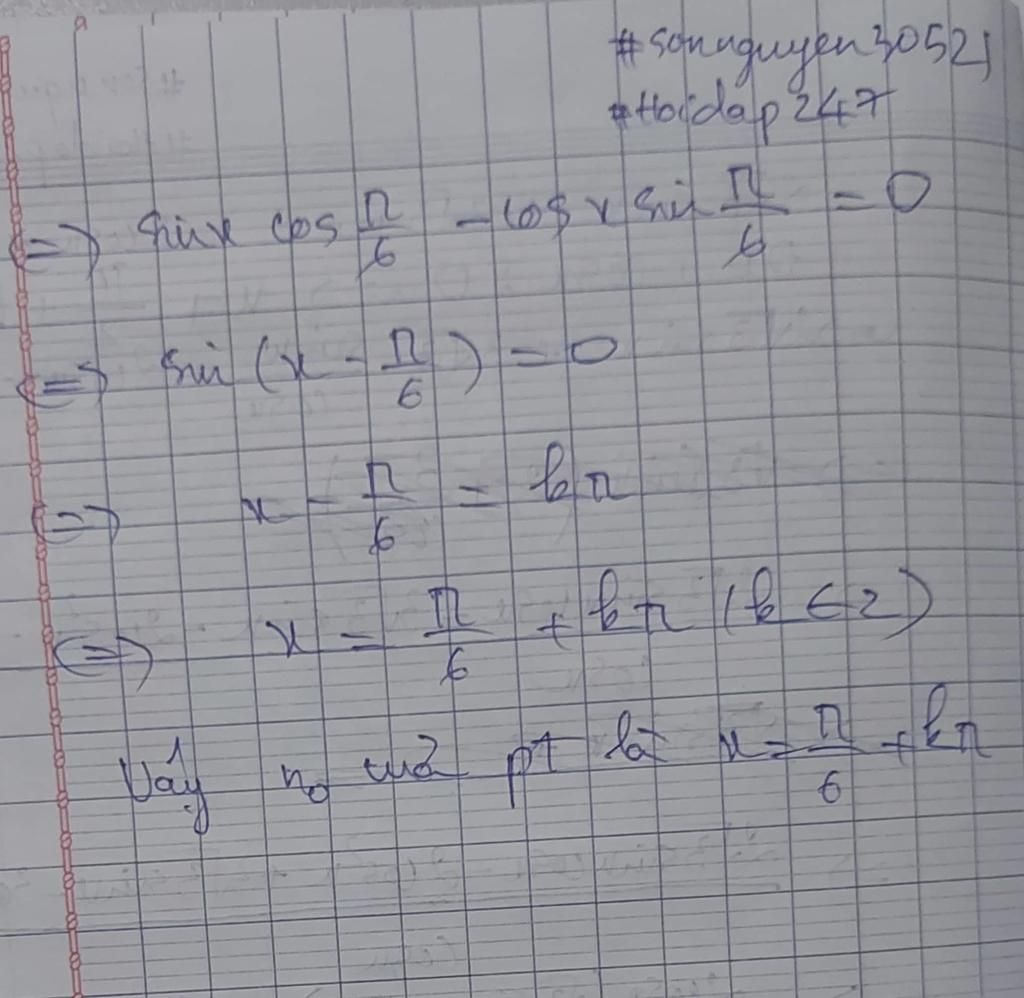 #sonnguyen30521
#Hoidap247
<=> sin x cos π/6 - cos x sin π/6 = 0
<=> sin (x - π/6) = 0
<=> x - π/6 = kπ
<=> x = π/6 + kπ (k ∈ Z)
Vậy no của pt là x = π/6 + kπ